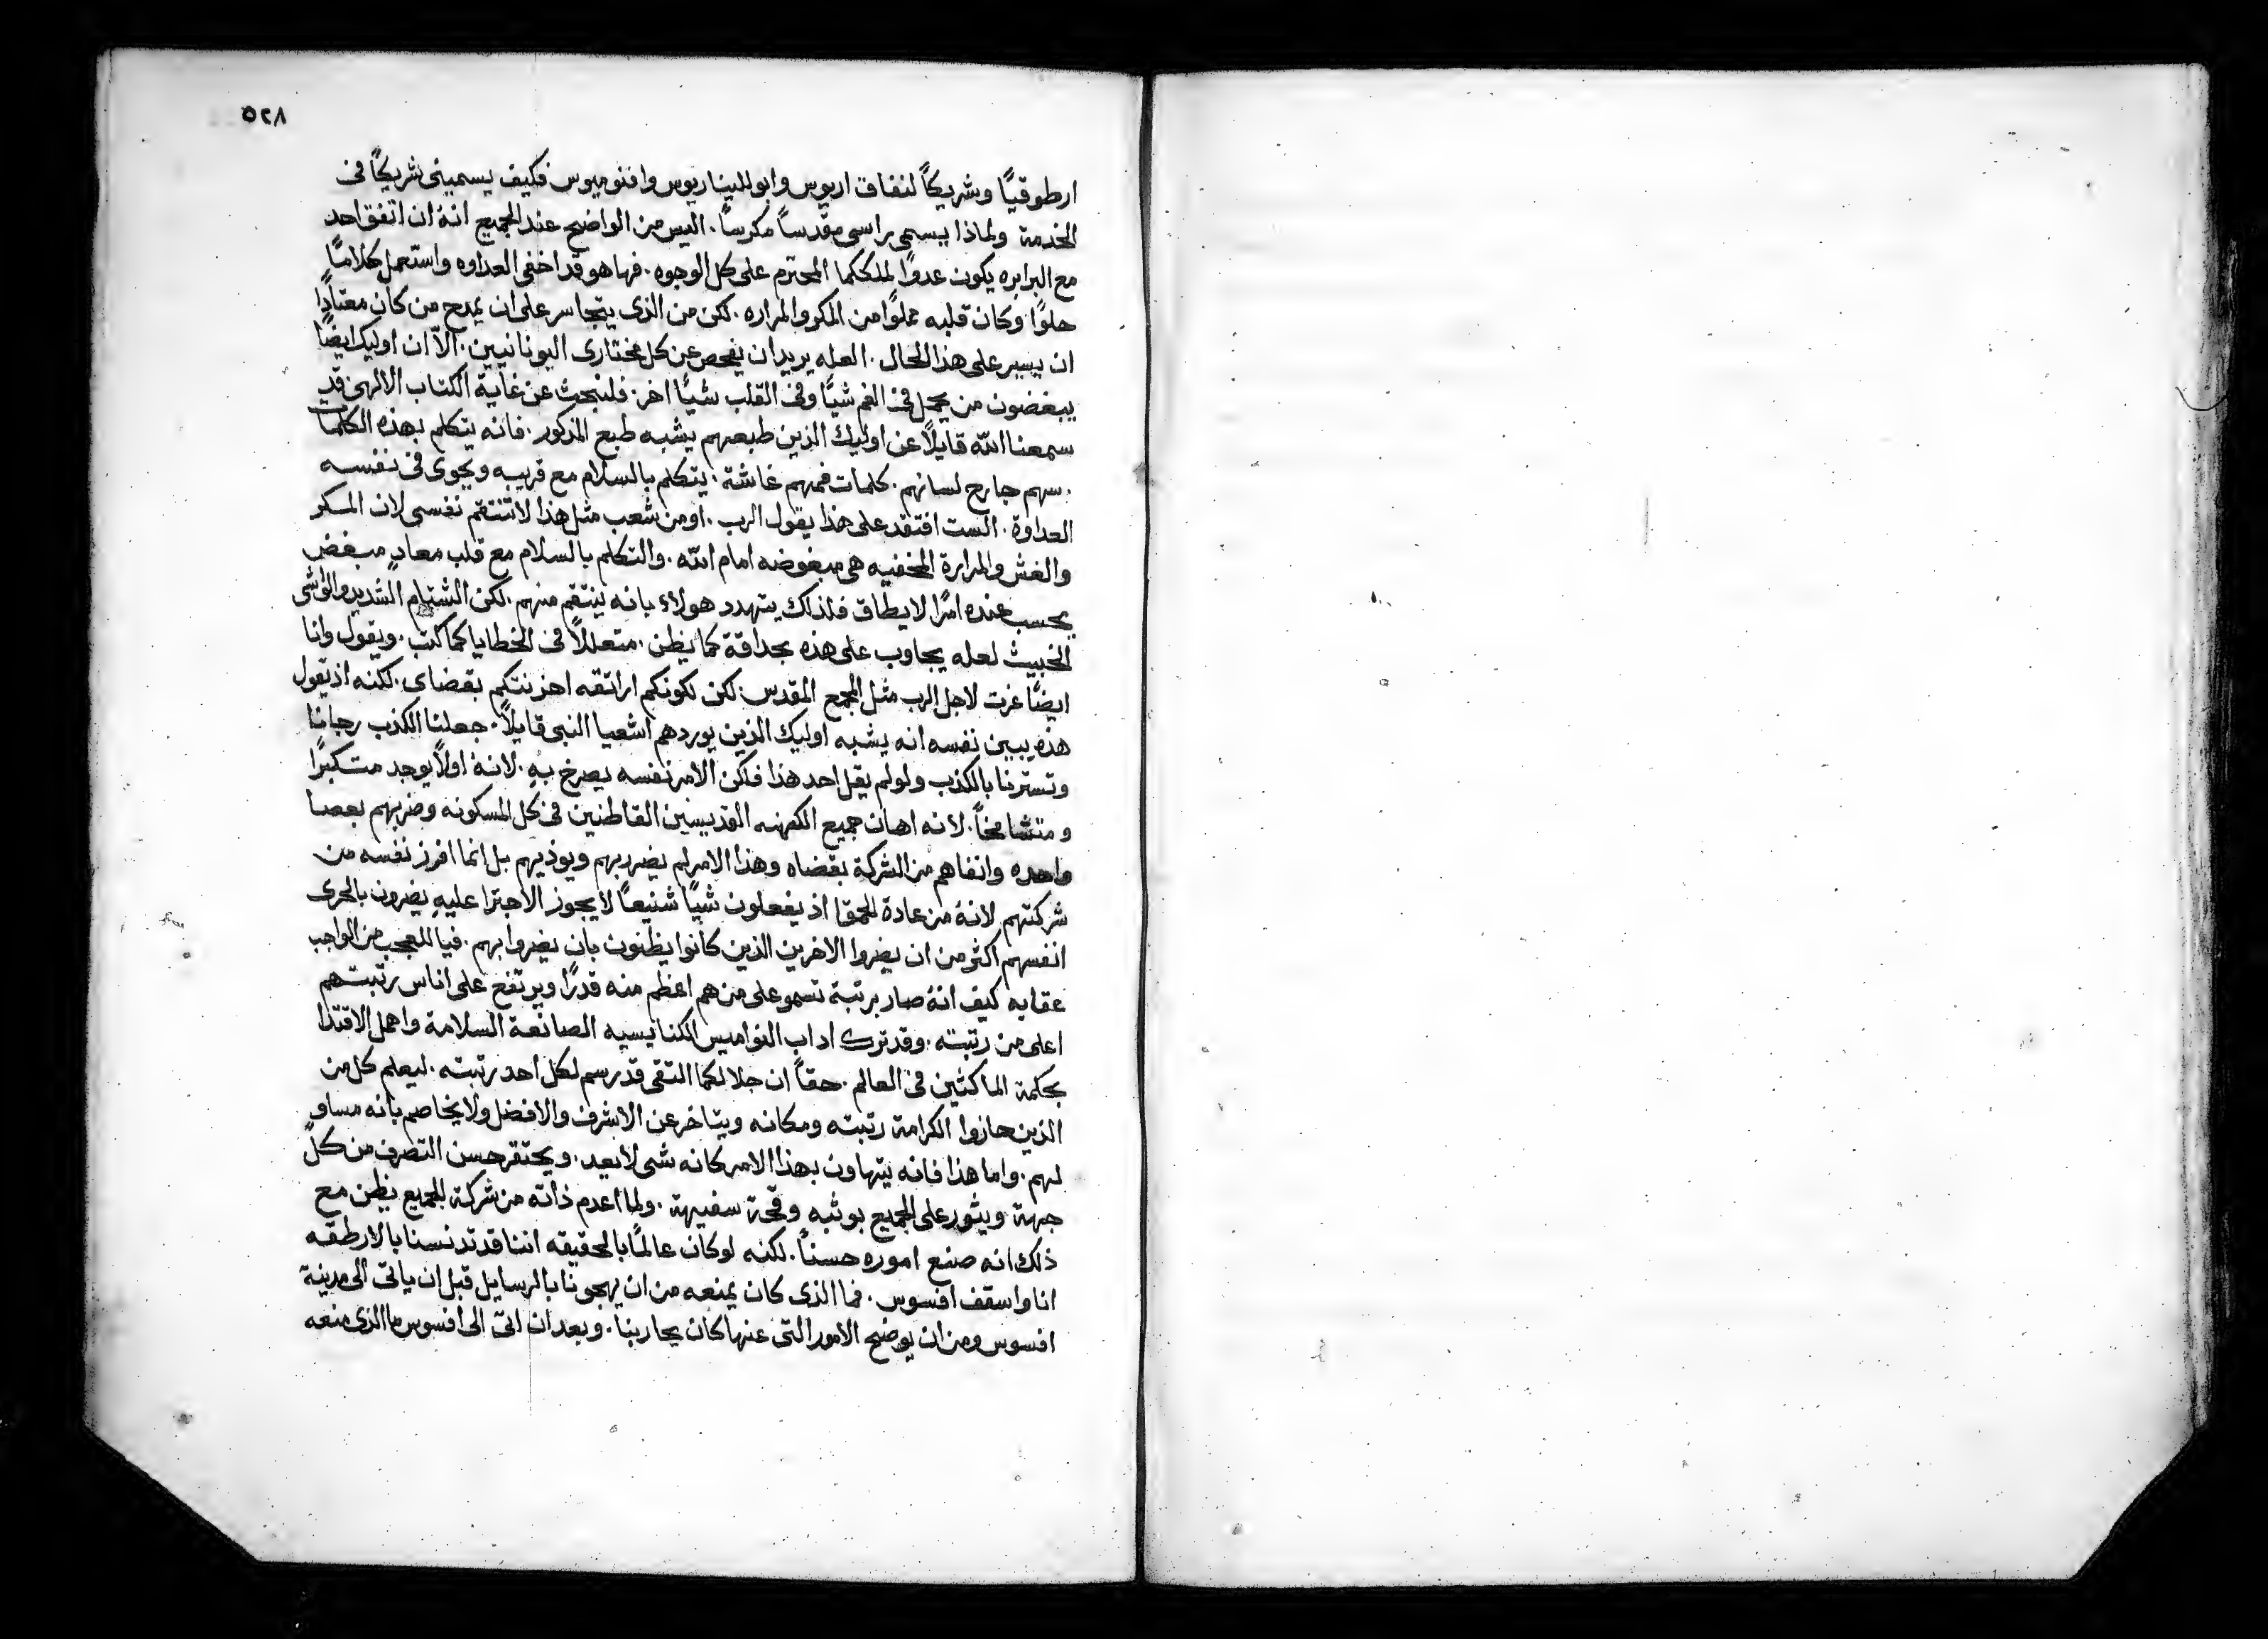 ٥٢٨
ارطوقيًا وشريكاً لنفاق اريوس وابولليناريوس وافنوميوس فكيف يسميني شريكًا في
الخدمة ولماذا يسمى راسي مقدساً مكرساً. اليس من الواضح عند الجميع انهُ ان اتفق احد
مع البرابره يكون عدوًا لملككما المحترم على كل الوجوه. فها هو قد اخفى العداوه واستعمل كلامًا
حلوًا وكان قلبه مملوًا من المكر والمراره. لكن من الذى يتجاسر على ان يمدح من كان معتادًا
ان يسير على هذا الحال. العله يريد ان يفحص عن كل مختارى اليونانيين. الاّ ان اوليك ايضًا
يبغضون من يحمل في الفم شيًا وفي القلب شيًا اخر. فلنبحث عن غاية الكتاب الالهى قد
سمعنا الله قايلاً عن اوليك الذين طبعهم يشبه طبع المذكور. فانه يتكلم بهذه الكلمات
. سهم جارح لسانهم. كلمات فمهم غاشة. يتكلم بالسلام مع قريبه ويحوى في نفسه
العداوة. الست افتقد على هذا يقول الرب. اومن شعب مثل هذا لا تنتقم نفسى لان المكر
والغش والمرارة المخفيه هى مبغوضه امام الله. والتكلم بالسلام مع قلب معادٍ مبغض
يحسب عنده امرًا لا يطاق فلذلك يتهدد هولاء بانه ينتقم منهم. لكن الشتام الشديد والواشى
الخبيث لعله يجاوب على هذه بحداقة كما يظن. متعللاً في الخطايا كما كتب. ويقول وانا
ايضًا غرت لاجل الرب مثل المجمع المقدس. لكن لكونكم اراتقه احزنتكم بقضاى. لكنه اذ يقول
هذه يبين نفسه انه يشبه اوليك الذين يوردهم اشعيا النبى قايلاً. جعلنا الكذب رجانا
وتسترنا بالكذب ولو لم يقل احد هذا فلكن الامر نفسه يصرخ بهِ. لانهُ اولاً يوجد متكبرًا
ومتشامخاً. لانه اهان جميع الكهنه القديسين القاطنين في كل المسكونه وضربهم بعصا
واحده وانفاهم من الشركة بقضاه وهذا الامر لم يضر بهم ويوذيهم بل انما افرز نفسه من
شركتهم لانهُ من عادة الحمقا اذ يفعلون شيًا شنيعًا لا يجوز الاجترا عليهِ يضرون بالحرى
انفسهم اكثر من ان يضروا الاخرين الذين كانوا يظنون بان يضروا بهم. فيا للعجب من الواجب
عقابه كيف انهُ صار برتبة تسمو على من هم اعظم منه قدرًا ويرتفع على اناس رتبتهم
اعلى من رتبته. وقد ترك اداب النواميس الكنايسيه الصانعة السلامة واهمل الاقتدا
بحكمة الماكثين في العالم. حقاً ان جلالكما التقى قد رسم لكل احد رتبته. ليعلم كل من
الذين حازوا الكرامة رتبته ومكانه ويتاخر عن الاشرف والافضل ولا يخاصم بانه مساو
لهم. واما هذا فانه يتهاون بهذا الامر كانه شى لا يعد. ويحتقر حسن التصرف من كل
جهة ويثور على الجميع بوثبه وقحة سفيهة. ولما اعدم ذاته من شركة الجميع يظن مع
ذلك انه صنع اموره حسناً. لكنه لو كان عالمًا بالحقيقه اننا قد تدنسنا بالارطقه
انا واسقف افسوس. فما الذى كان يمنعه من ان يهجونا بالرسايل قبل ان ياتى الى مدينة
افسوس ومن ان يوضح الامور التى عنها كان يحاربنا. وبعد ان اتى الى افسوس ما الذى منعه